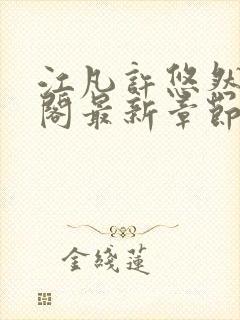 江凡許悠然
閣最新章節
金綫蓮